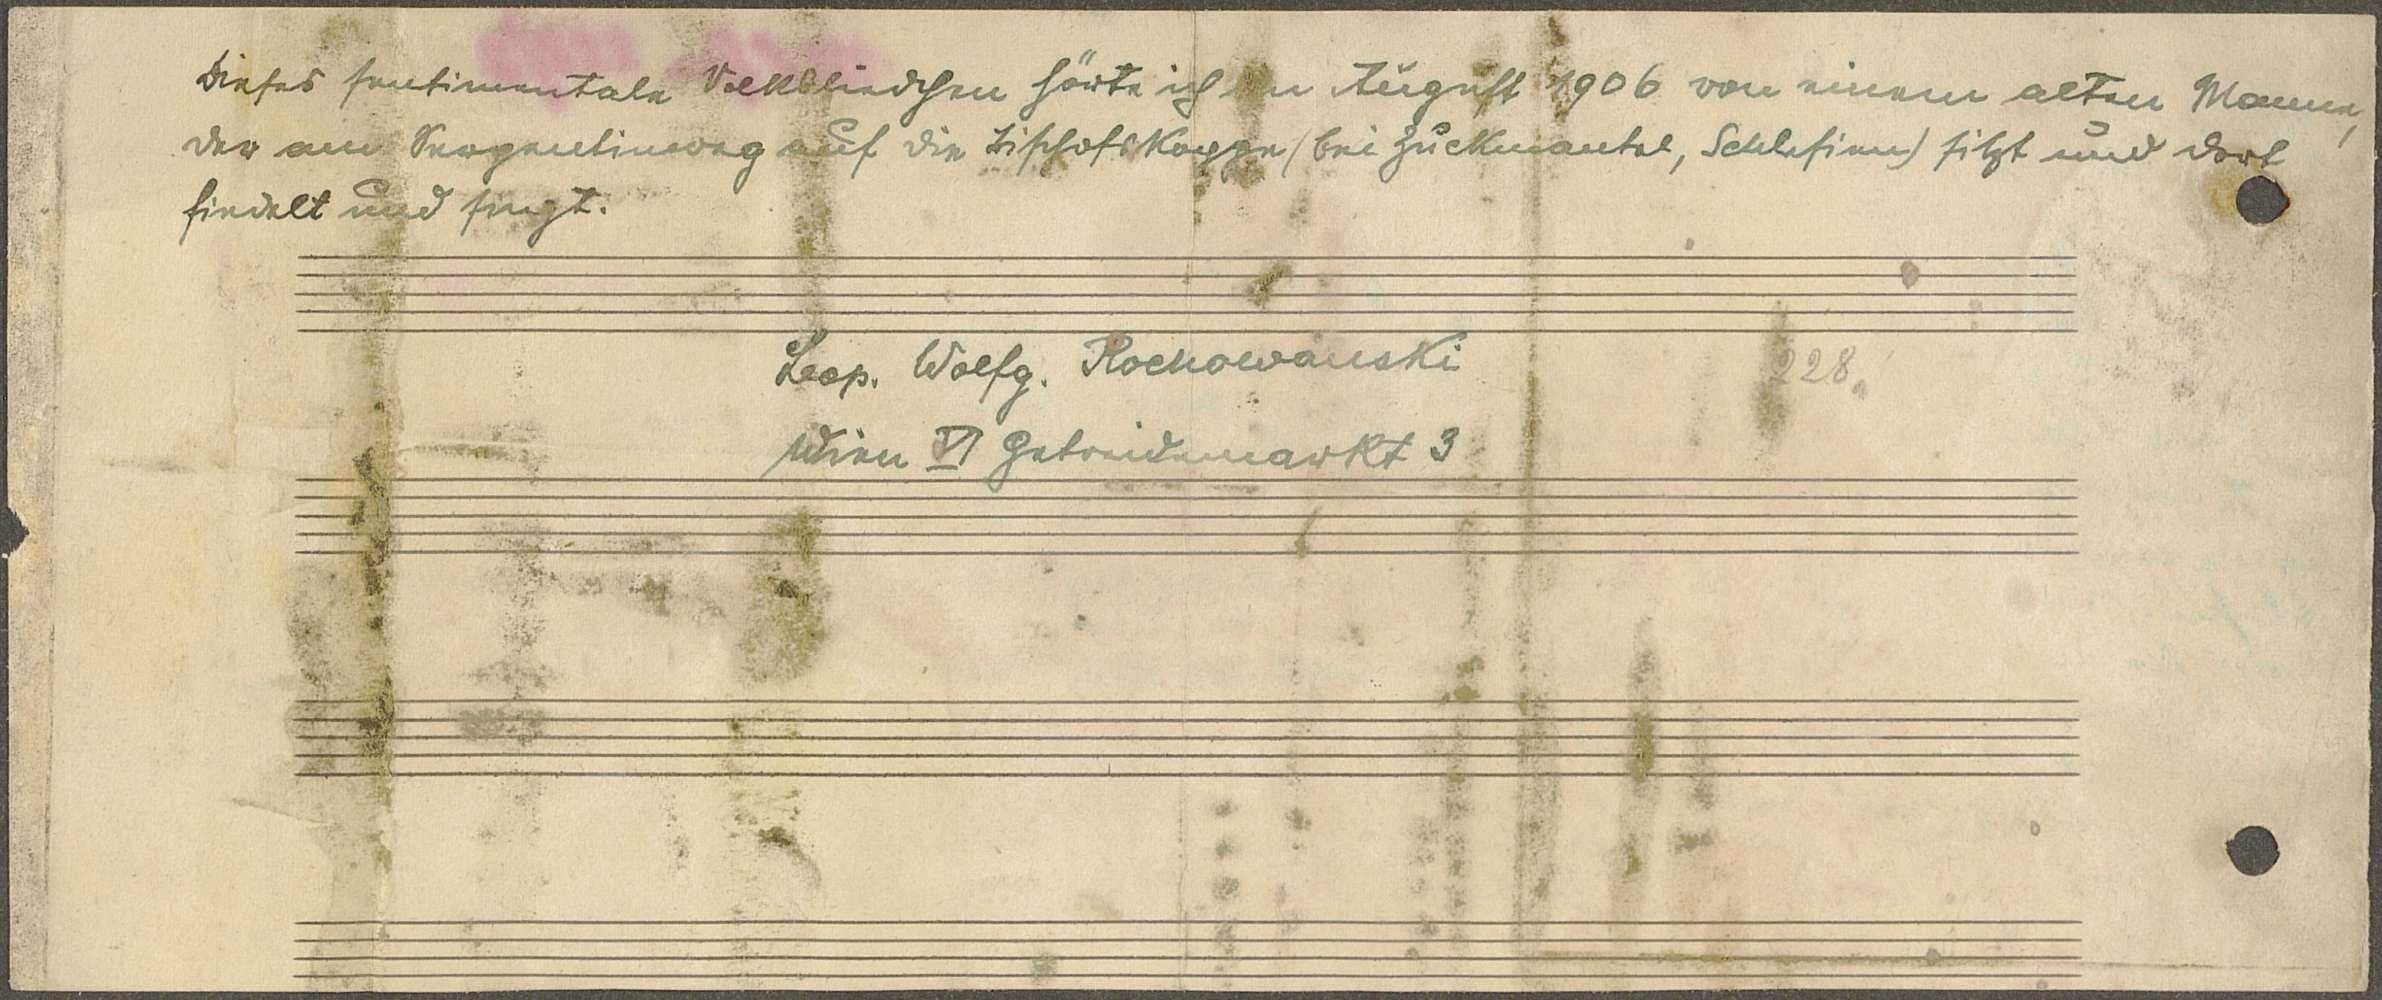 Dieses sentimentale Volksliedchen hörte ich im August 1906 von einem alten Manne,
der am Serpentinweg auf die Bischofskoppe (bei Zuckmantel, Schlesien) sitzt und dort
fiedelt und singt.
Leop. Wolfg. Rochowanski
228.
Wien VI Getreidemarkt 3